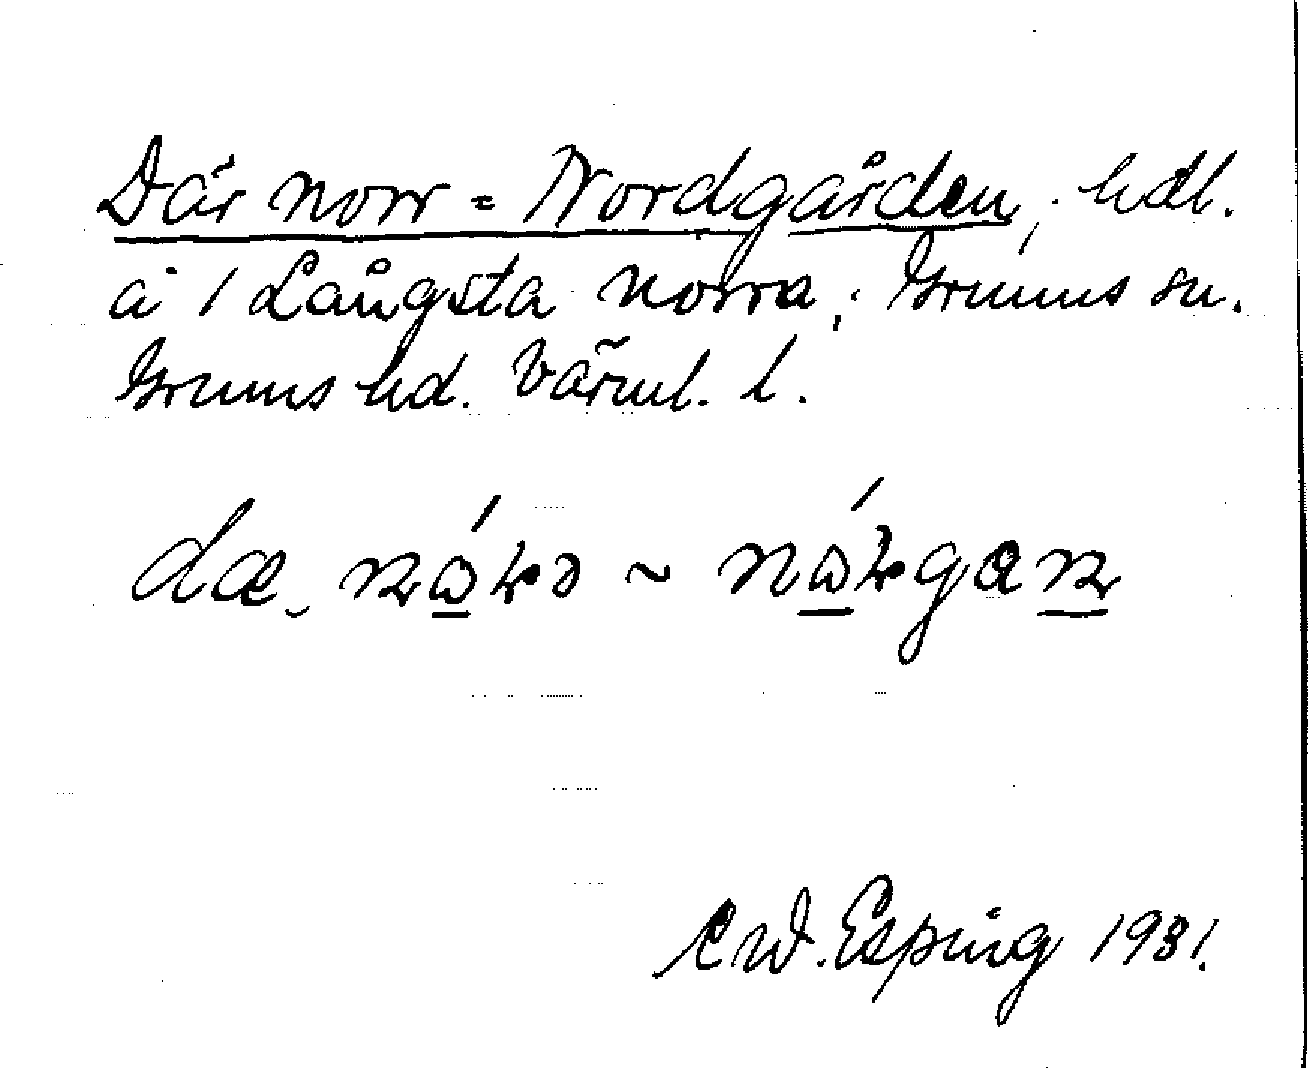 Där norr = Nordgården, hdl.
å 1 Långsta norra, Grums sn.
Grums hd. Värml. l.
dæ nɷ́rə ~ nɷ́rgan
C W. Esping 1931.